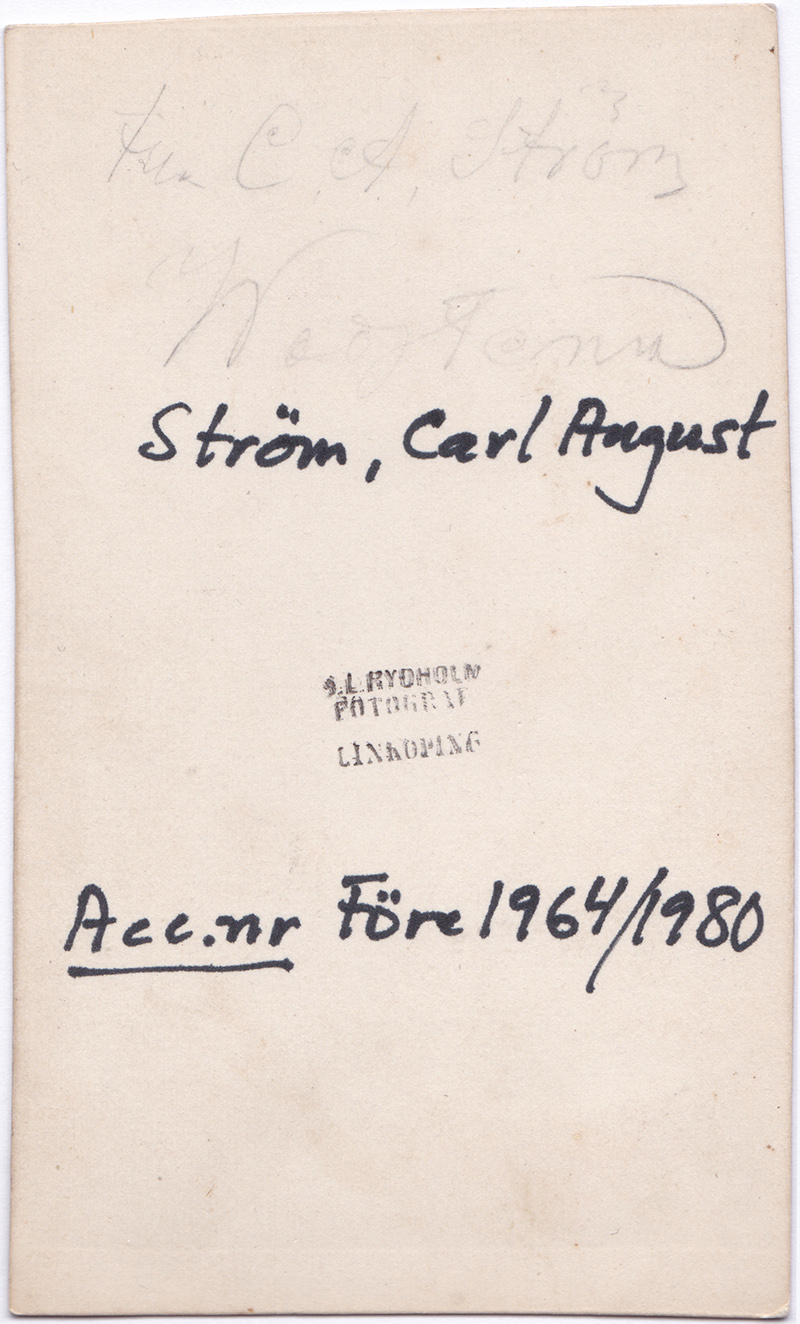 C. A. Ström
Ström, Carl August
L. RYDHOLM
FOTOGRAF
LINKÖPING
Acc.nr Före 1964/1980